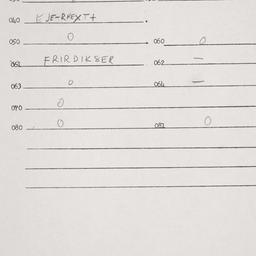 040
050 0 060 0
061 FRIRDIKSER 062 —
063 0 064 —
070 0
080 0 081 0